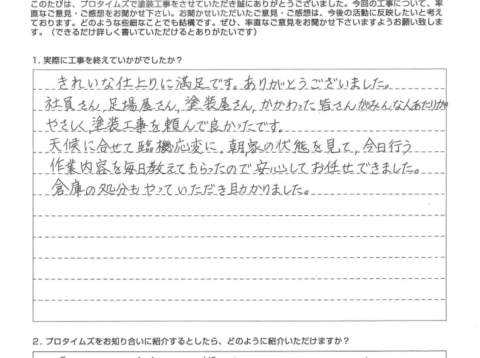 このたびは、プロタイムズで塗装工事をさせていただき誠にありがとうございました。今回の工事について、率
直なご意見・ご感想をお聞かせ下さい。お聞かせいただいたご意見・ご感想は、今後の活動に反映したいと考え
ております。どのような些細なことでも結構です。ぜひ、率直なご意見をお聞かせ下さいますようお願い致しま
す。（できるだけ詳しく書いていただけるとありがたいです）
1. 実際に工事を終えていかがでしたか？
きれいな仕上りに満足です。ありがとうございました。
社員さん,足場屋さん,塗装屋さん,かかわった皆さんがみんな人あたりが
やさしく,塗装工事を頼んで良かったです。
天候に合せて臨機応変に、朝,家の状態を見て,今日行う
作業内容を毎日教えてもらったので安心してお任せできました。
倉庫の処分もやっていただき助かりました。
2. プロタイムズをお知り合いに紹介するとしたら、どのように紹介いただけますか？